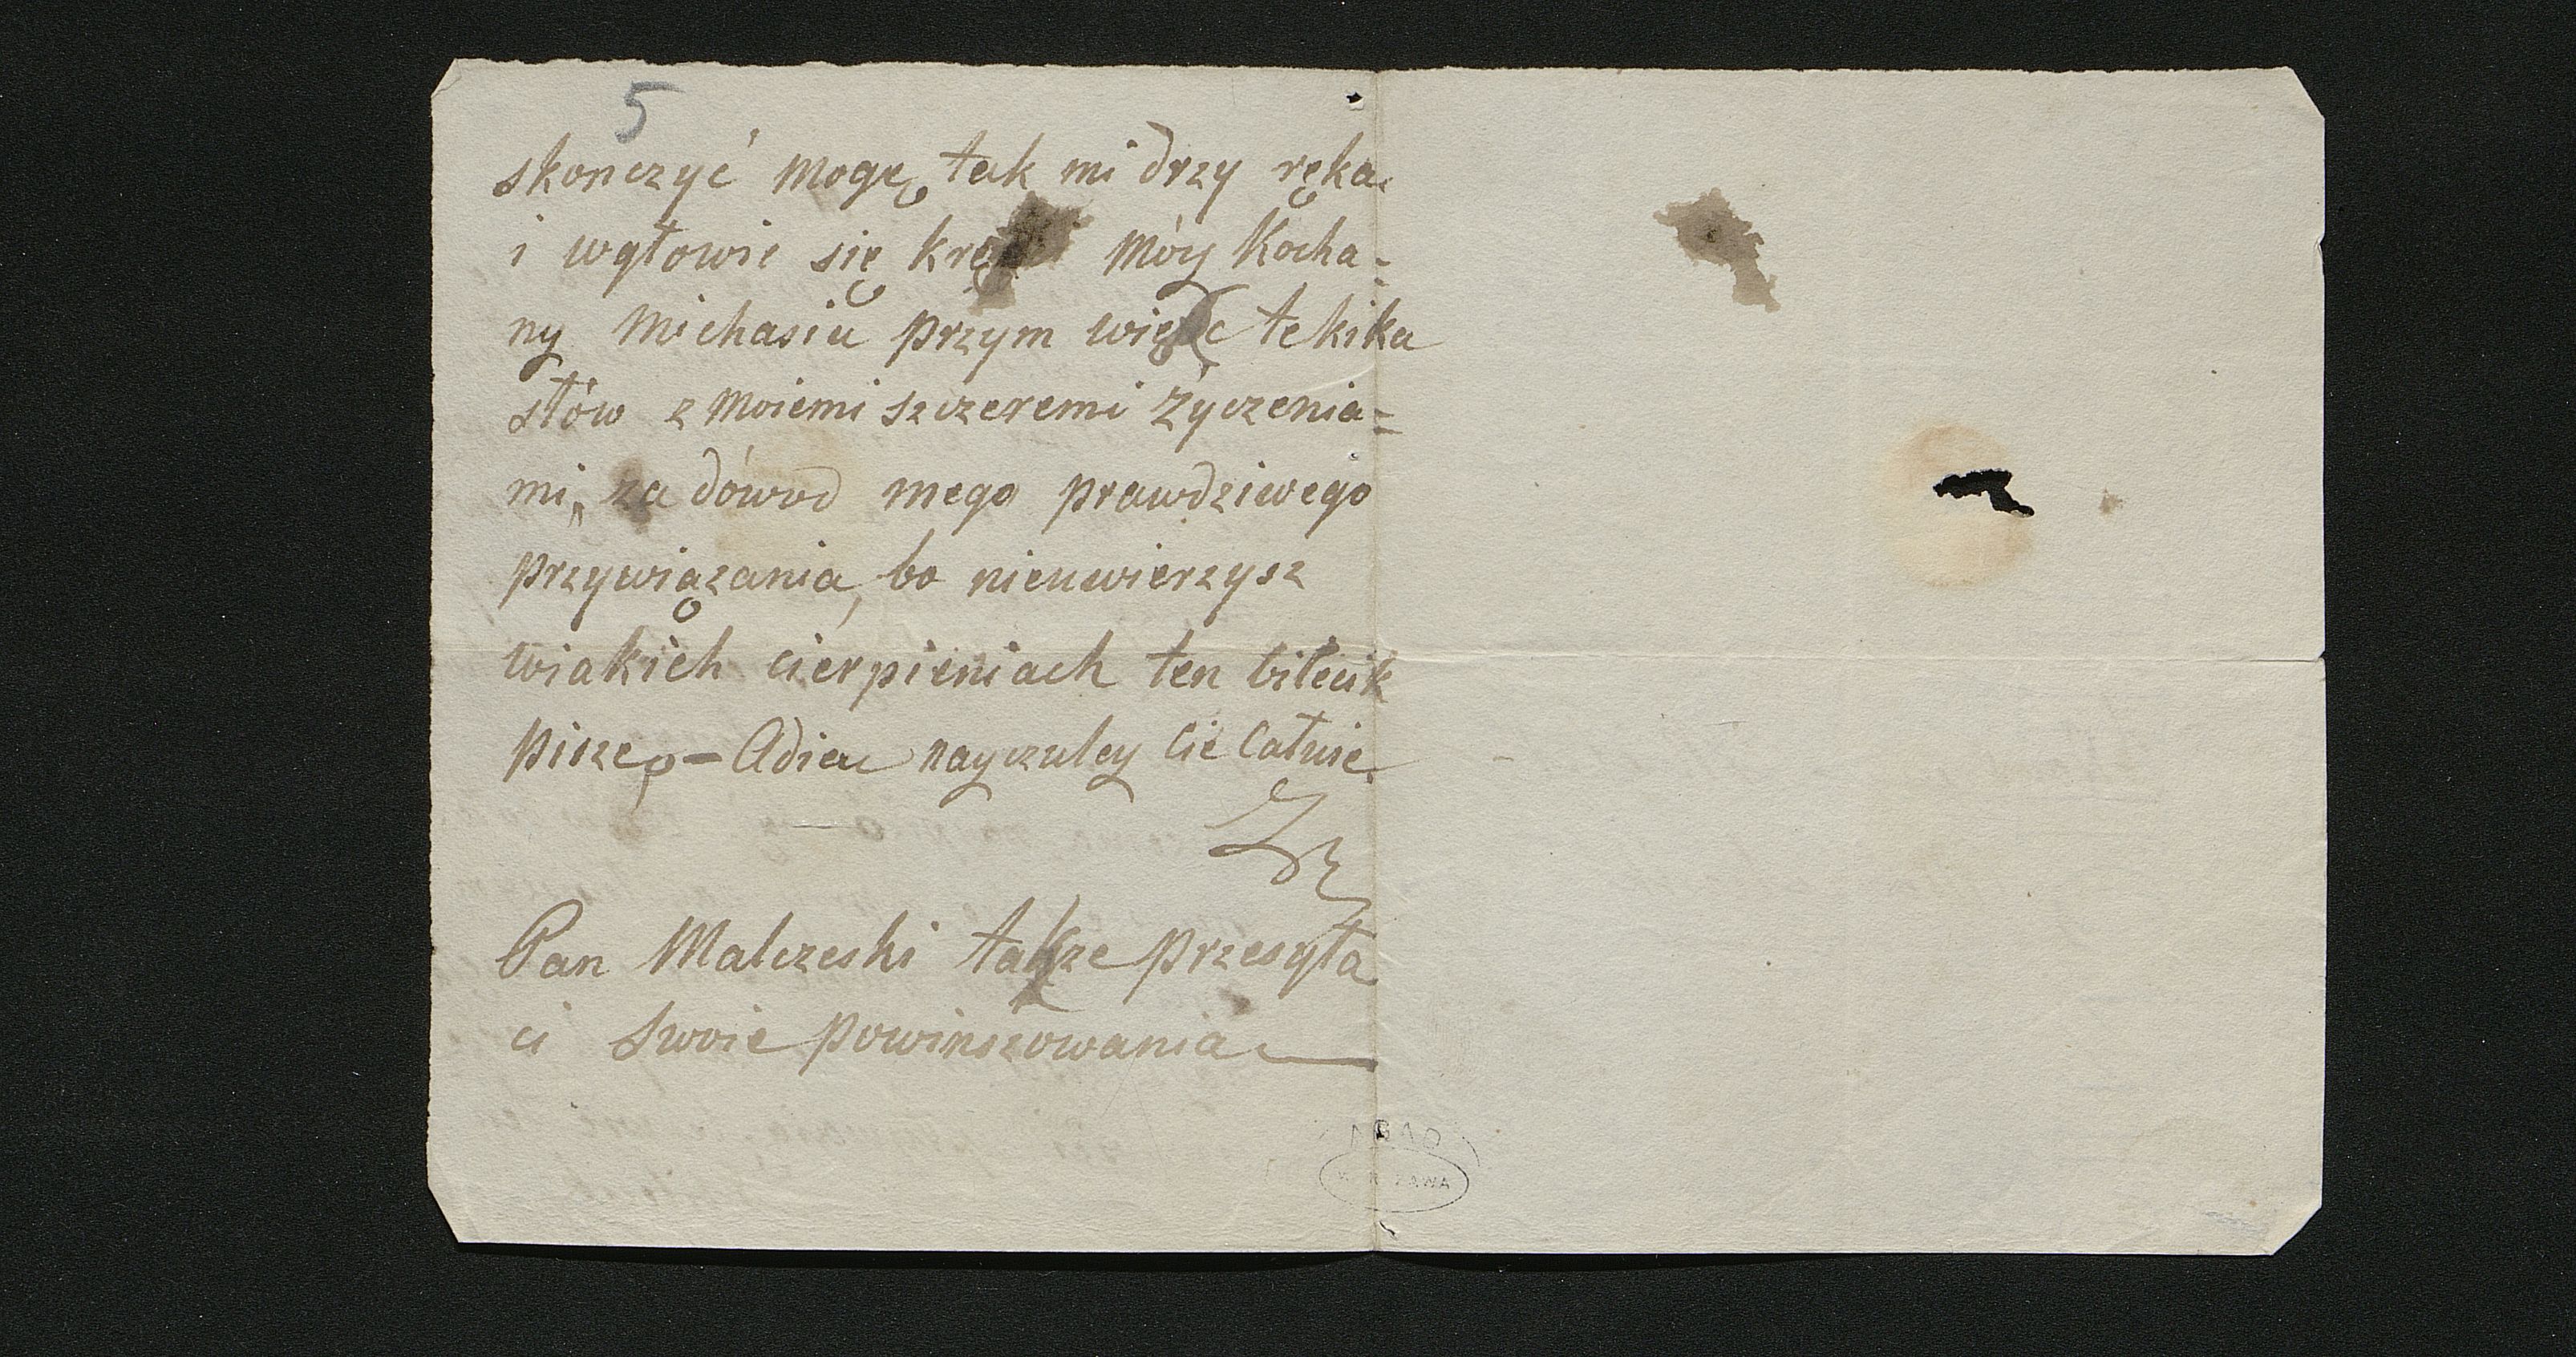 5
skonczyć mogę, tak mi drzy ręka
i wgłowie się kręci Móy Kocha=
ny Michasiu przym więc te kika
słów z moiemi szczeremi życzenia=
mi, za dówod mego prawdziwego
przywiązania, bo nieuwierzysz
wiakich cierpieniach ten bilecik
piszę - Adieu nayczuley Cie Całuie
Pan Malczeski także przesyła
ci swoie powinszowania
AGAD
WARSZAWA